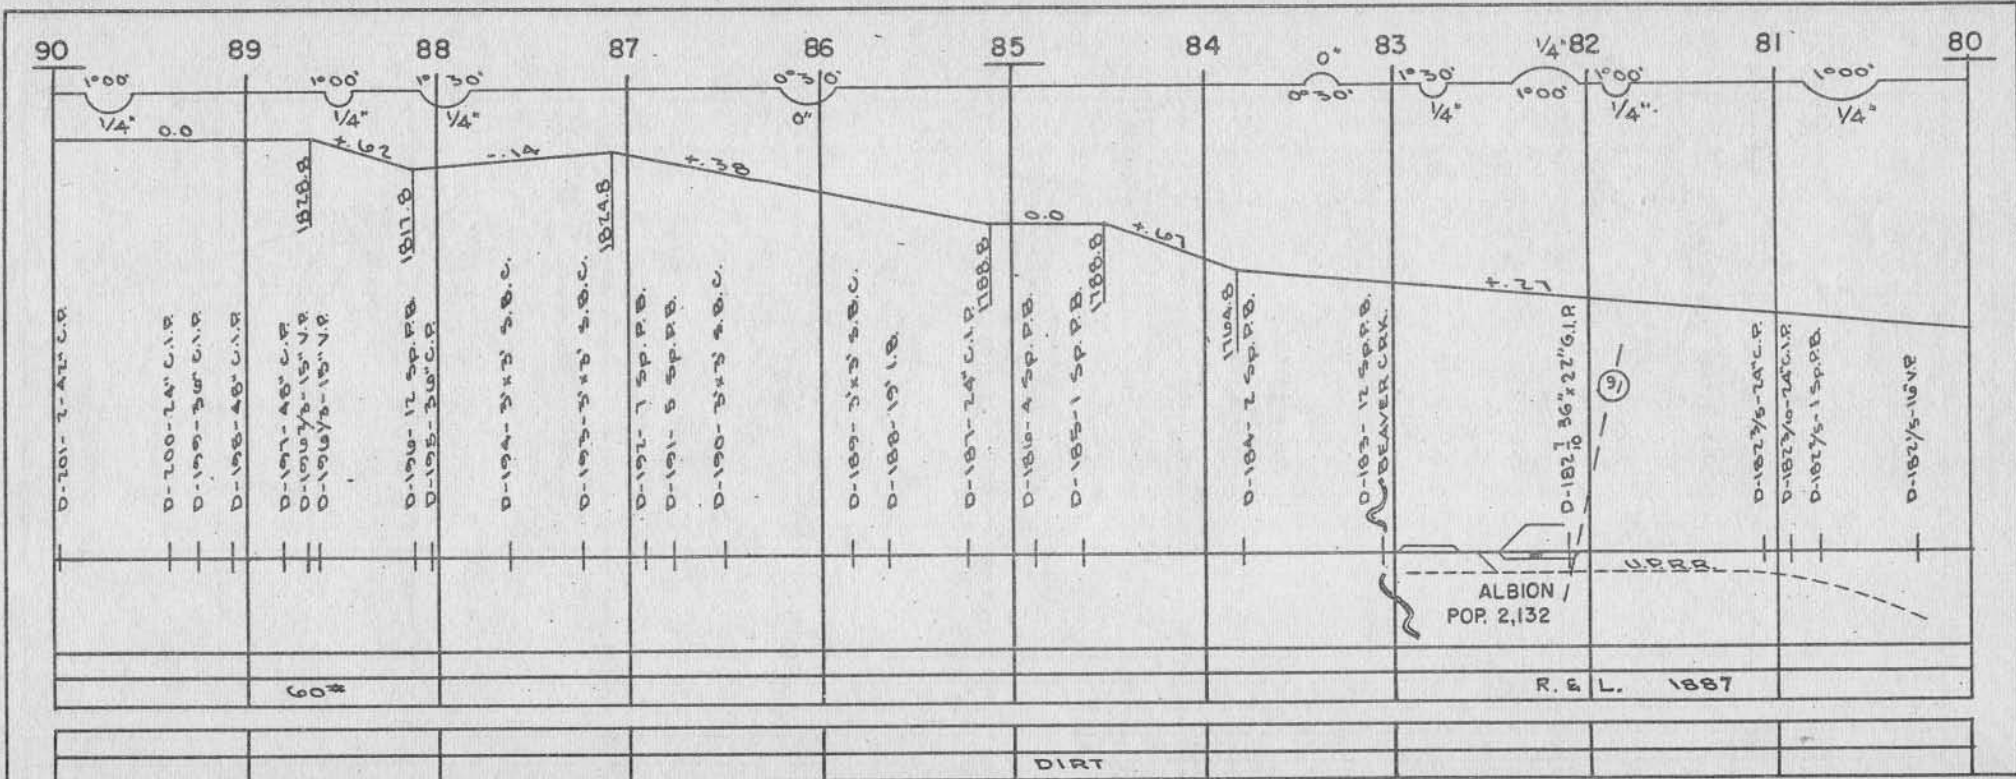 90 89 88 87 86 85 84 83 82 81 80
1°00' 1°00' 1° 30' 0°30' 0" 1°30' 1/4" 1°00' 1°00'
1/4" 1/4" 1/4" 0" 0°30' 1/4" 1°00' 1/4" 1/4"
0.0 +.62 -.14 +.38 0.0 +.67 +.27
1828.8
1817.8
1824.8
1788.8
1788.8
1764.8
D-201-2-42" C.P.
D-200-24" C.I.P.
D-199-36" C.I.P.
D-198-48" C.I.P.
D-197-48" C.P.
D-196 2/3-15" V.P.
D-196 1/3-15" V.P.
D-196-12 Sp. P.B.
D-195-36" C.P.
D-194-3'x3' S.B.C.
D-193-3'x3' S.B.C.
D-192-7 Sp. P.B.
D-191-8 Sp. P.B.
D-190-3'x3' S.B.C.
D-189-3'x3' S.B.C.
D-188-19' I.B.
D-187-24" C.I.P.
D-186-4 Sp. P.B.
D-185-1 Sp. P.B.
D-184-2 Sp. P.B.
D-183-12 Sp. P.B.
BEAVER CRK.
D-182 7/10 36"x22" G.I.P.
91
D-182 3/5-24" C.P.
D-182 3/10-24" C.I.P.
D-182 2/5-1 Sp. P.B.
D-182 1/5-16" V.P.
U.P.R.R.
ALBION
POP. 2,132
60#
R. & L. 1887
DIRT